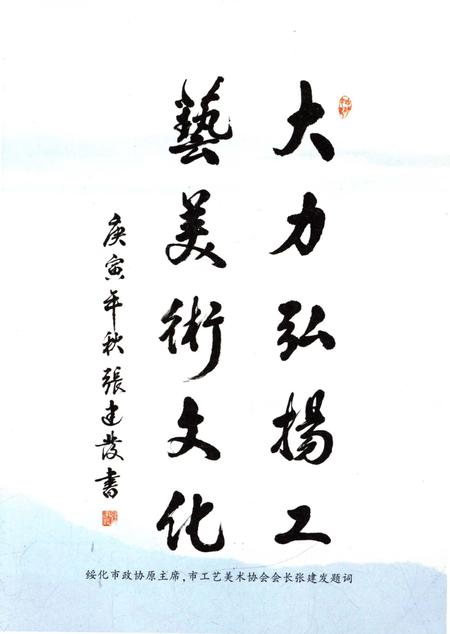 大力弘揚工
藝美術文化
庚寅年秋張建發書
绥化市政协原主席,市工艺美术协会会长张建发题词